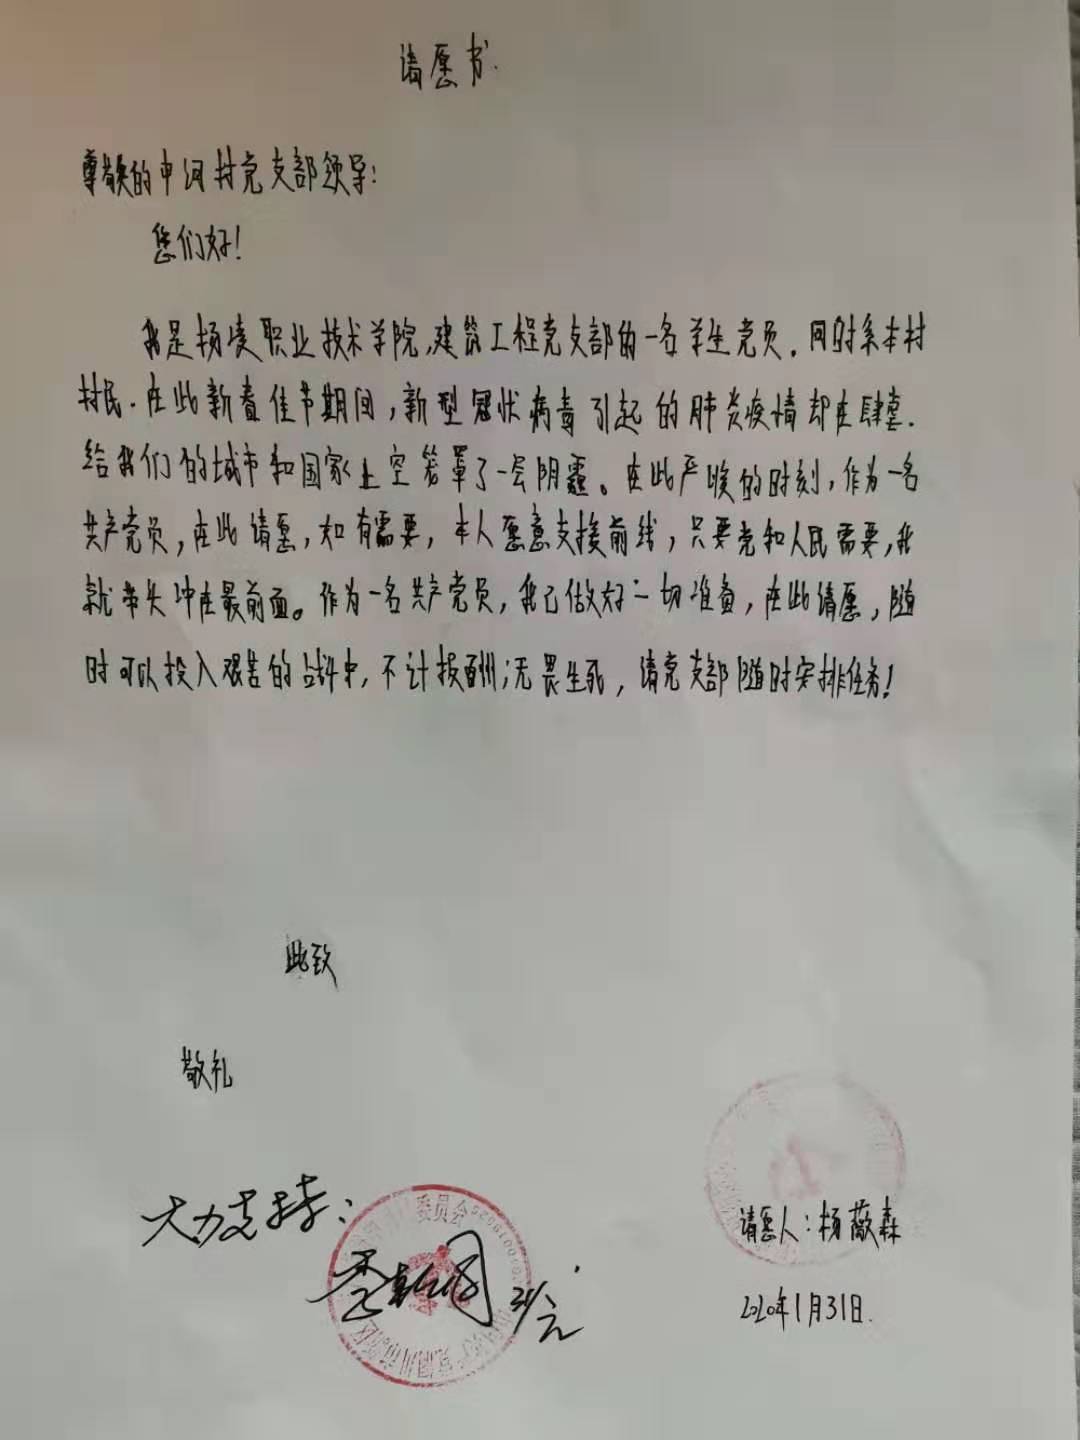 请愿书.
尊敬的中河村党支部领导:
您们好!
我是杨凌职业技术学院,建筑工程党支部的一名学生党员.同时系本村
村民.在此新春佳节期间,新型冠状病毒引起的肺炎疫情却在肆虐.
给我们的城市和国家上空笼罩了一层阴霾。在此严峻的时刻,作为一名
共产党员,在此请愿,如有需要,本人愿意支援前线,只要党和人民需要,我
就带头冲在最前面。作为一名共产党员,我已做好一切准备,在此请愿,随
时可以投入艰苦的战斗中,不计报酬;无畏生死,请党支部随时安排任务!
此致
敬礼
大力支持:
委员会
请愿人:杨薇森
2020年1月31日.